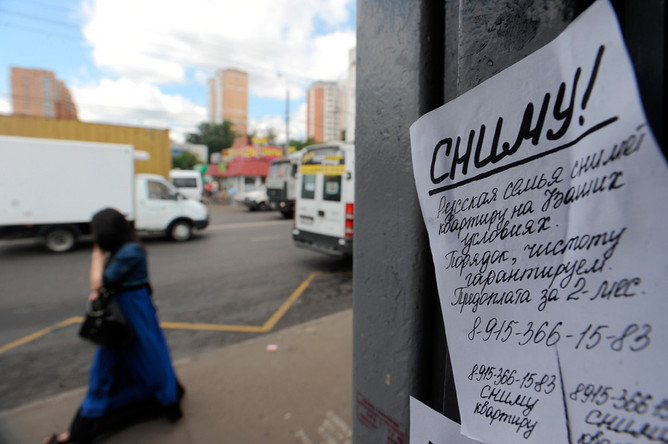 СНИМУ!
Русская семья снимет
квартиру на Ваших
условиях.
Порядок, чистоту
гарантируем.
Предоплата за 2-мес.
8-915-366-15-83
8-915-366-1583
СНИМУ
квартиру
8-915-366
СНИМУ